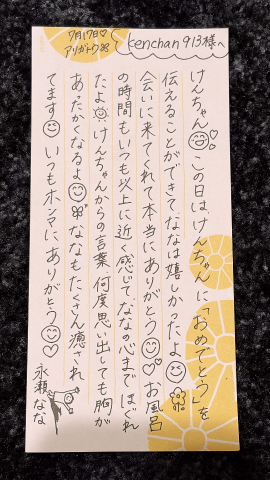 7月17日♡
アリガトウ
kenchan913様へ
けんちゃん😊♡この日はけんちゃんに「おめでとう」を
伝えることができて、ななは嬉しかったよ😊
会いに来てくれて本当にありがとう😊♡お風呂
の時間もいつも以上に近く感じて、ななの心までほぐれ
たよ☀けんちゃんからの言葉、何度思い出しても胸が
あったかくなるよ😊ななもたくさん癒され
てます😊いつもホンマに、ありがとう😊♡
永瀬なな